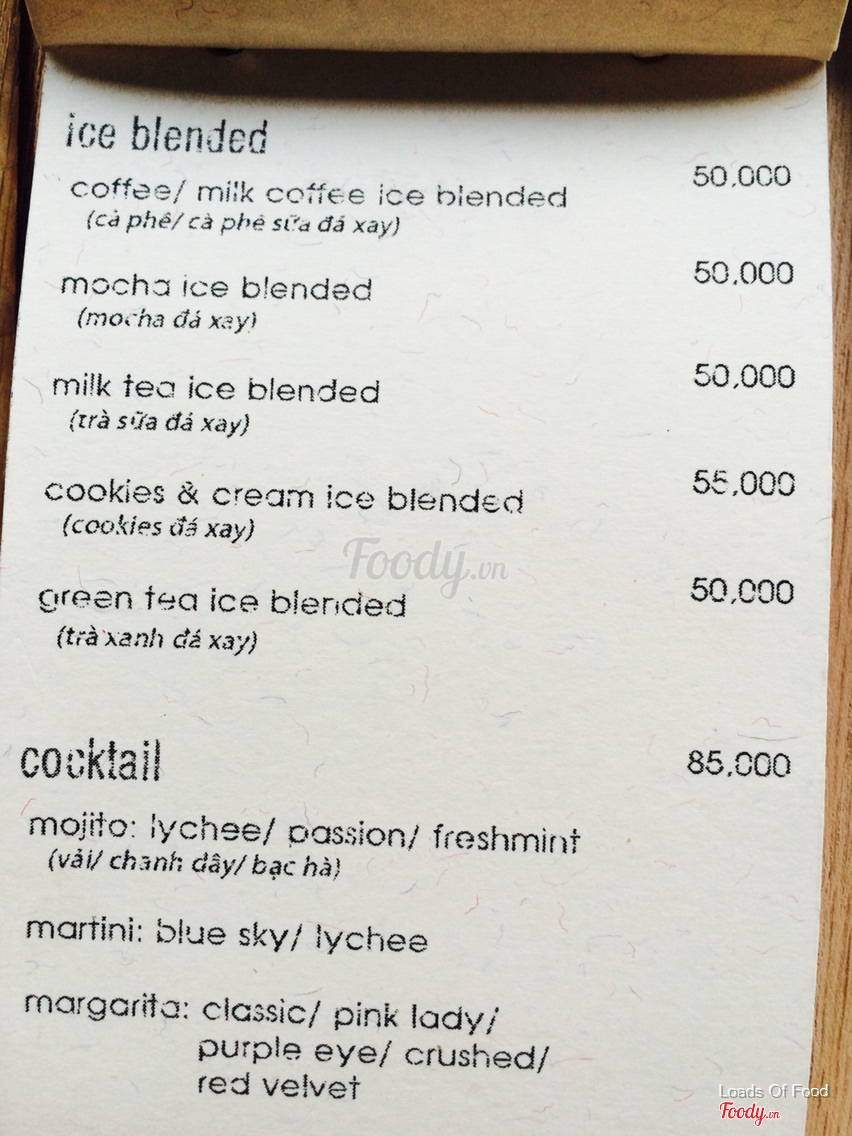 ice blended
coffee/ milk coffee ice blended 50,000
(cà phê/ cà phê sữa đá xay)
mocha ice blended 50,000
(mocha đá xay)
milk tea ice blended 50,000
(trà sữa đá xay)
cookies & cream ice blended 55,000
(cookies đá xay)
Foody.vn
green tea ice blended 50,000
(trà xanh đá xay)
cocktail 85,000
mojito: lychee/ passion/ freshmint
(vải/ chanh dây/ bạc hà)
martini: blue sky/ lychee
margarita: classic/ pink lady/
purple eye/ crushed/
red velvet
Loads Of Food
Foody.vn